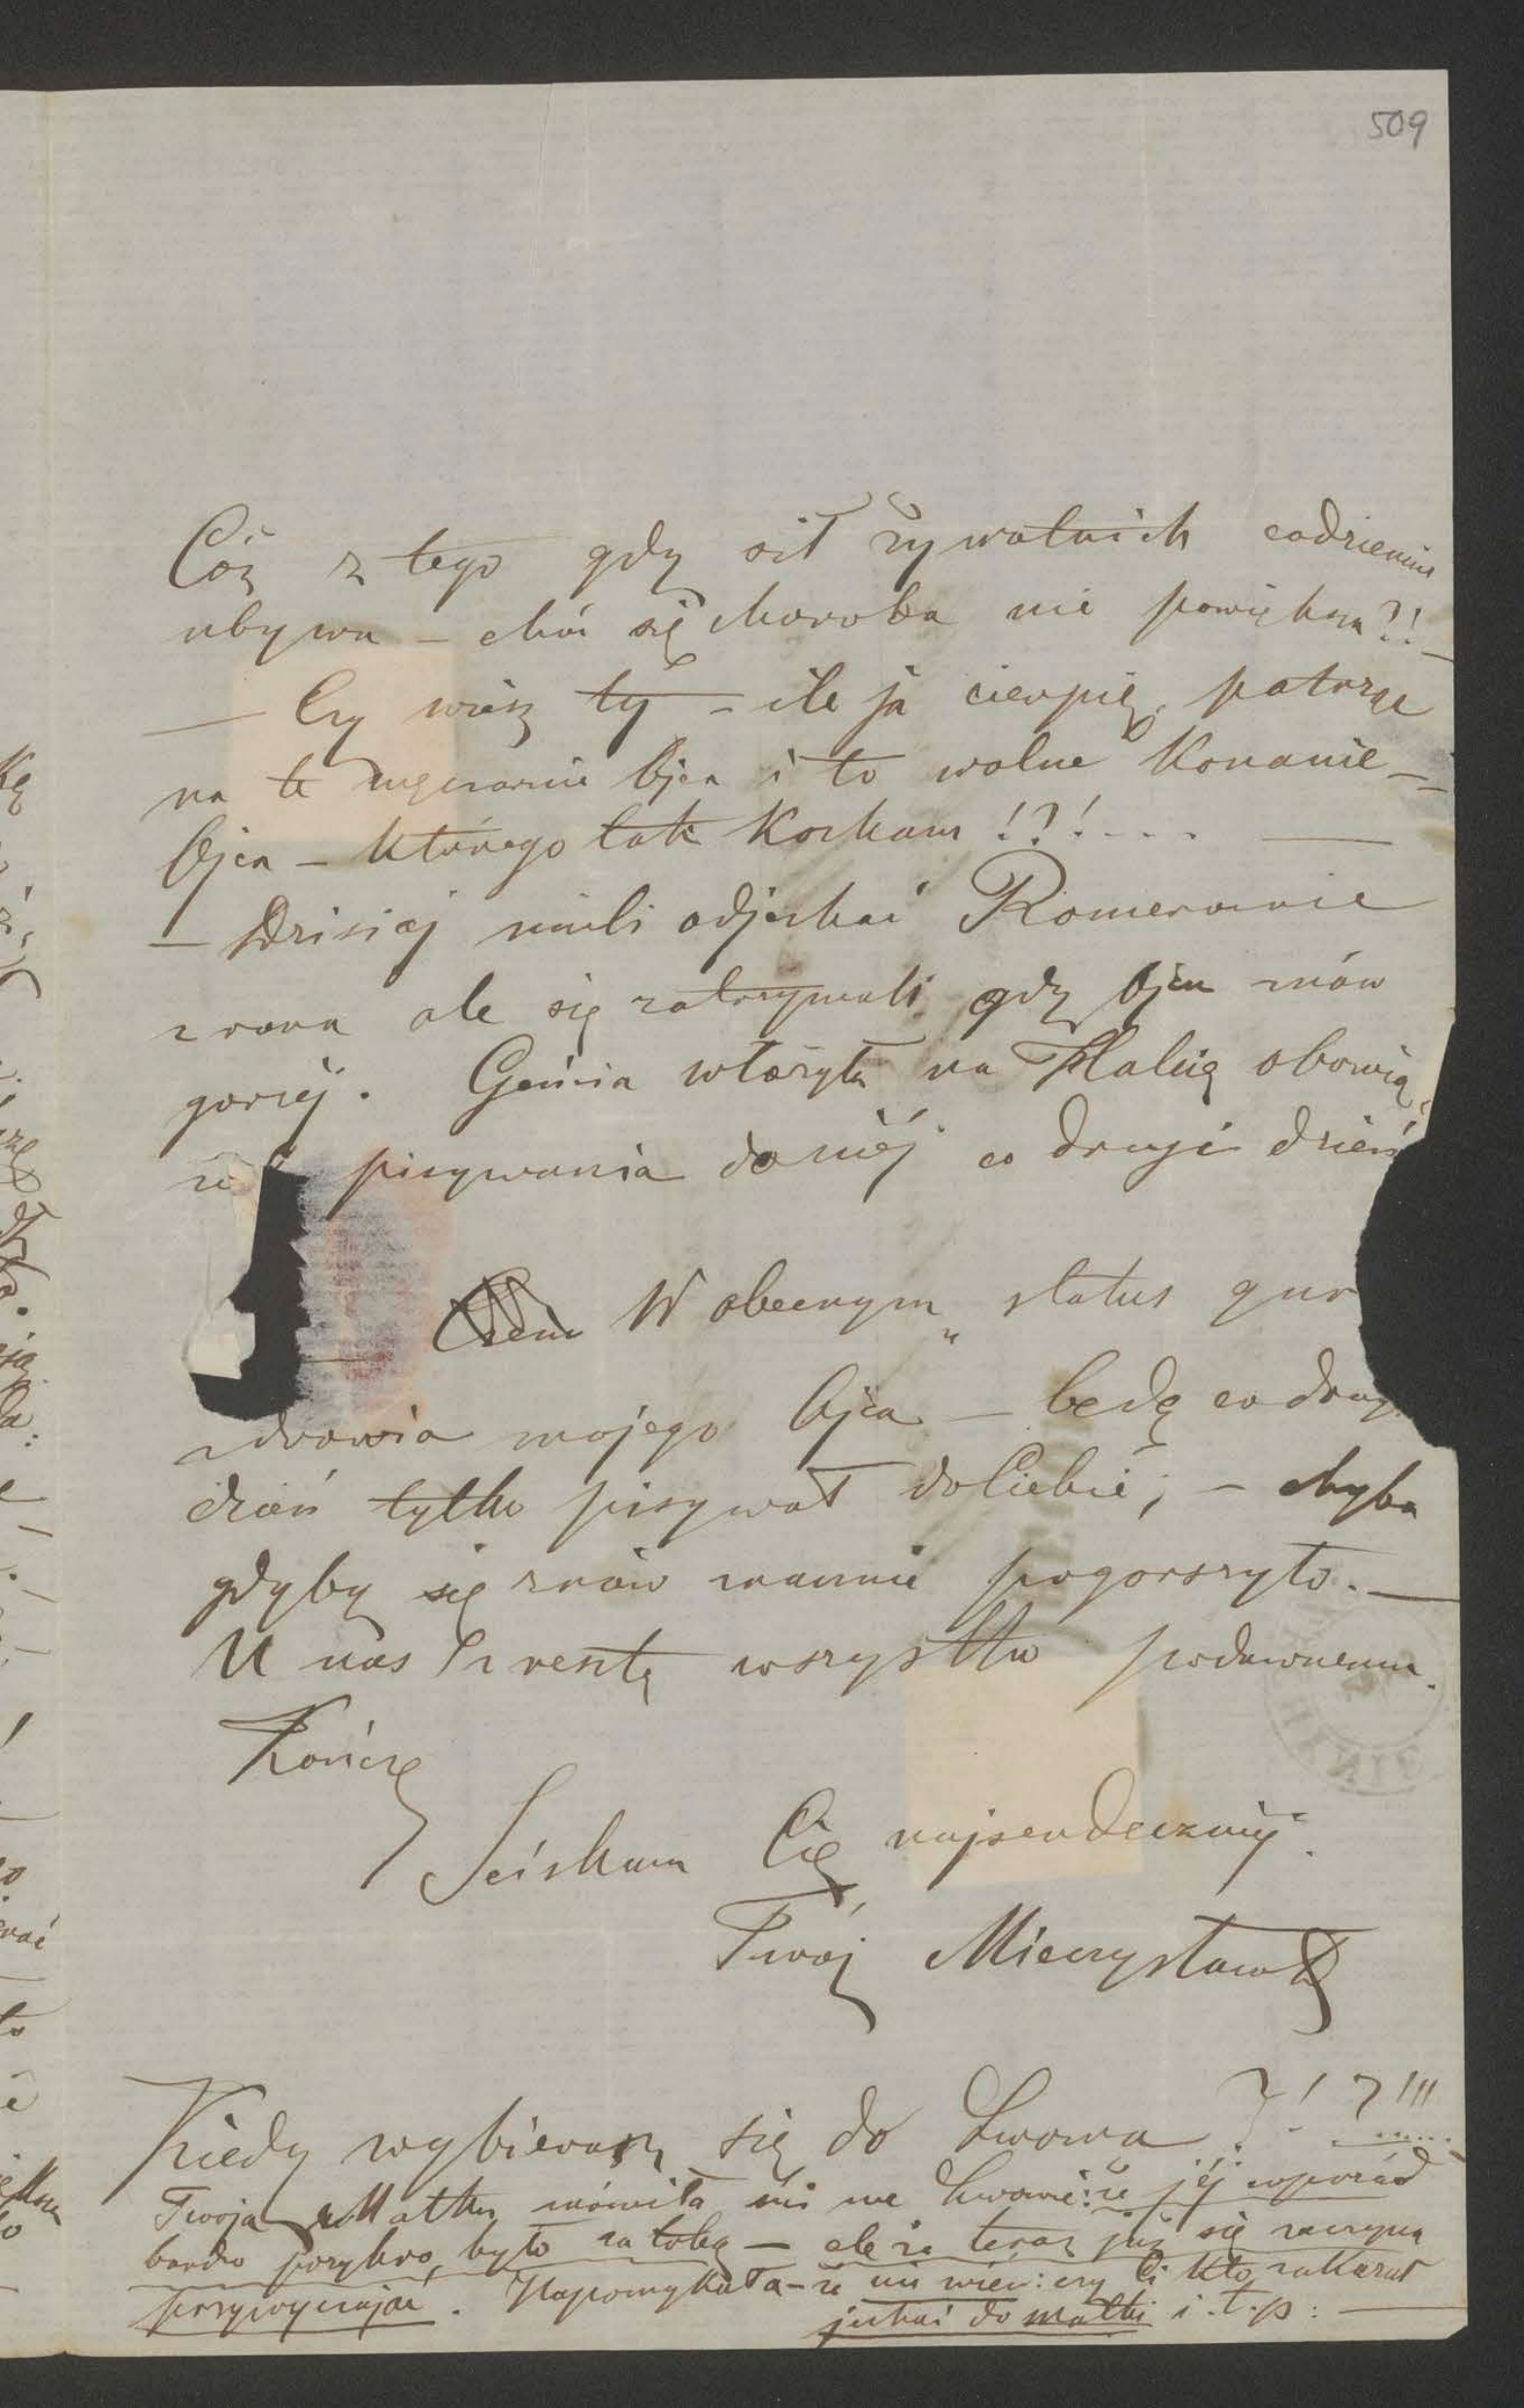 509
Cóż z tego gdy sił żywotnich codziennie
ubywa – choć się choroba nie powiększa?! –
– Czy wiesz ty – ile ja cierpię, patrząc
na te męczarnie Ojca i to wolne konanie –
Ojca – którego tak kocham!?!... –
– Dzisiaj mieli odjechać Romerowie
z rana ale się zatrzymali gdy Ojcu znów
gorzej. Genia włożyła na Halię obowią-
pisywania do niéj co drugi dzień
W obecnym „status quo
zdrowia mojego Ojca – będę co drug
dzień tylko pisywał do Ciebie; – chyba
gdyby się znów znacznie pogorszyło. –
U nas zresztą wszystko podawnemu.
Kończę
Ściskam Cię najserdeczniej.
Twój Mieczysław
Kiedy wybierasz się do Lwowa ?!?!!!
Twoja Matka mówiła mi we Lwowie: że jéj wprzód
bardzo przykro było za tobą – ale że teraz już się zaczyna
przyzwyczajać. Napomykała – że nie wie: czy Ci kto zakazał
jechać do matki i.t.p: –